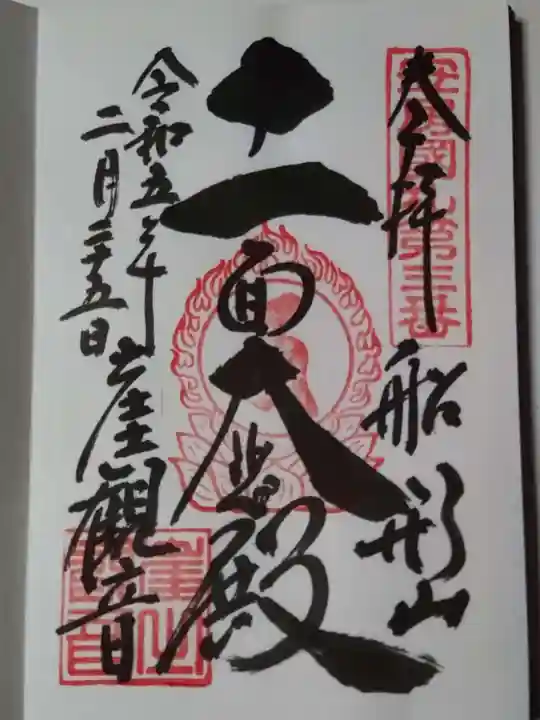 奉拝
船形山
安房國札第三番
十一面大悲殿
令和五年
二月二十五日
崖観音
崖観音